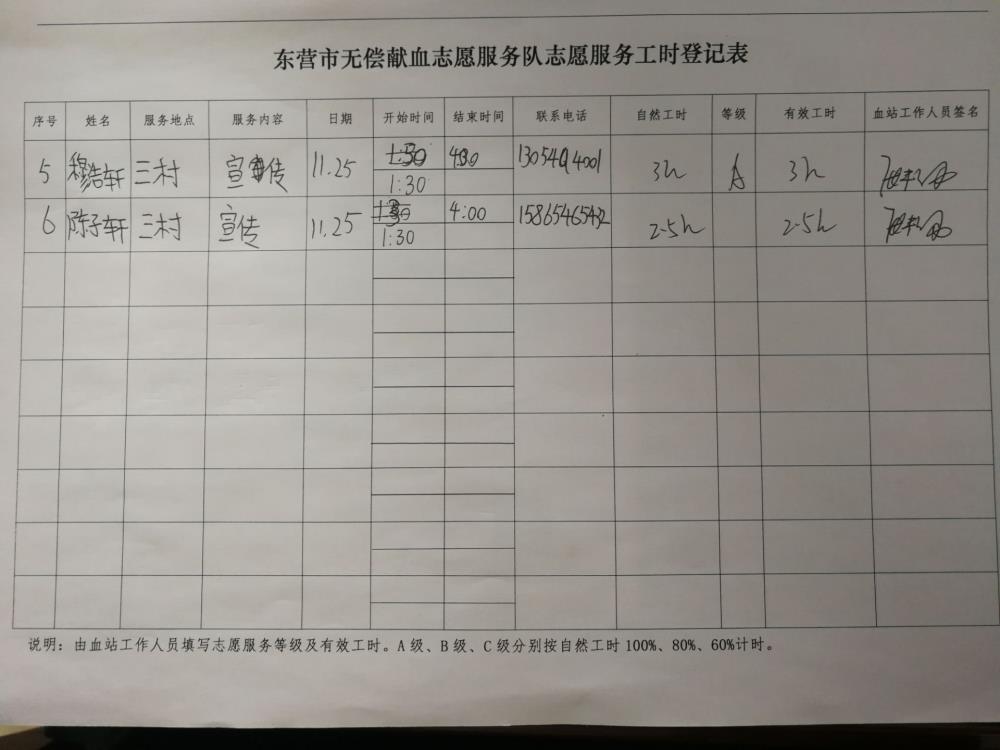 东营市无偿献血志愿服务队志愿服务工时登记表
序号 姓名 服务地点 服务内容 日期 开始时间 结束时间 联系电话 自然工时 等级 有效工时 血站工作人员签名
5 穆浩轩 三村 宣传 11.25 1:30 4:30 13054914001 3h A 3h
6 陈子轩 三村 宣传 11.25 1:30 4:00 15865465432 2.5h 2.5h
说明：由血站工作人员填写志愿服务等级及有效工时。A级、B级、C级分别按自然工时100%、80%、60%计时。